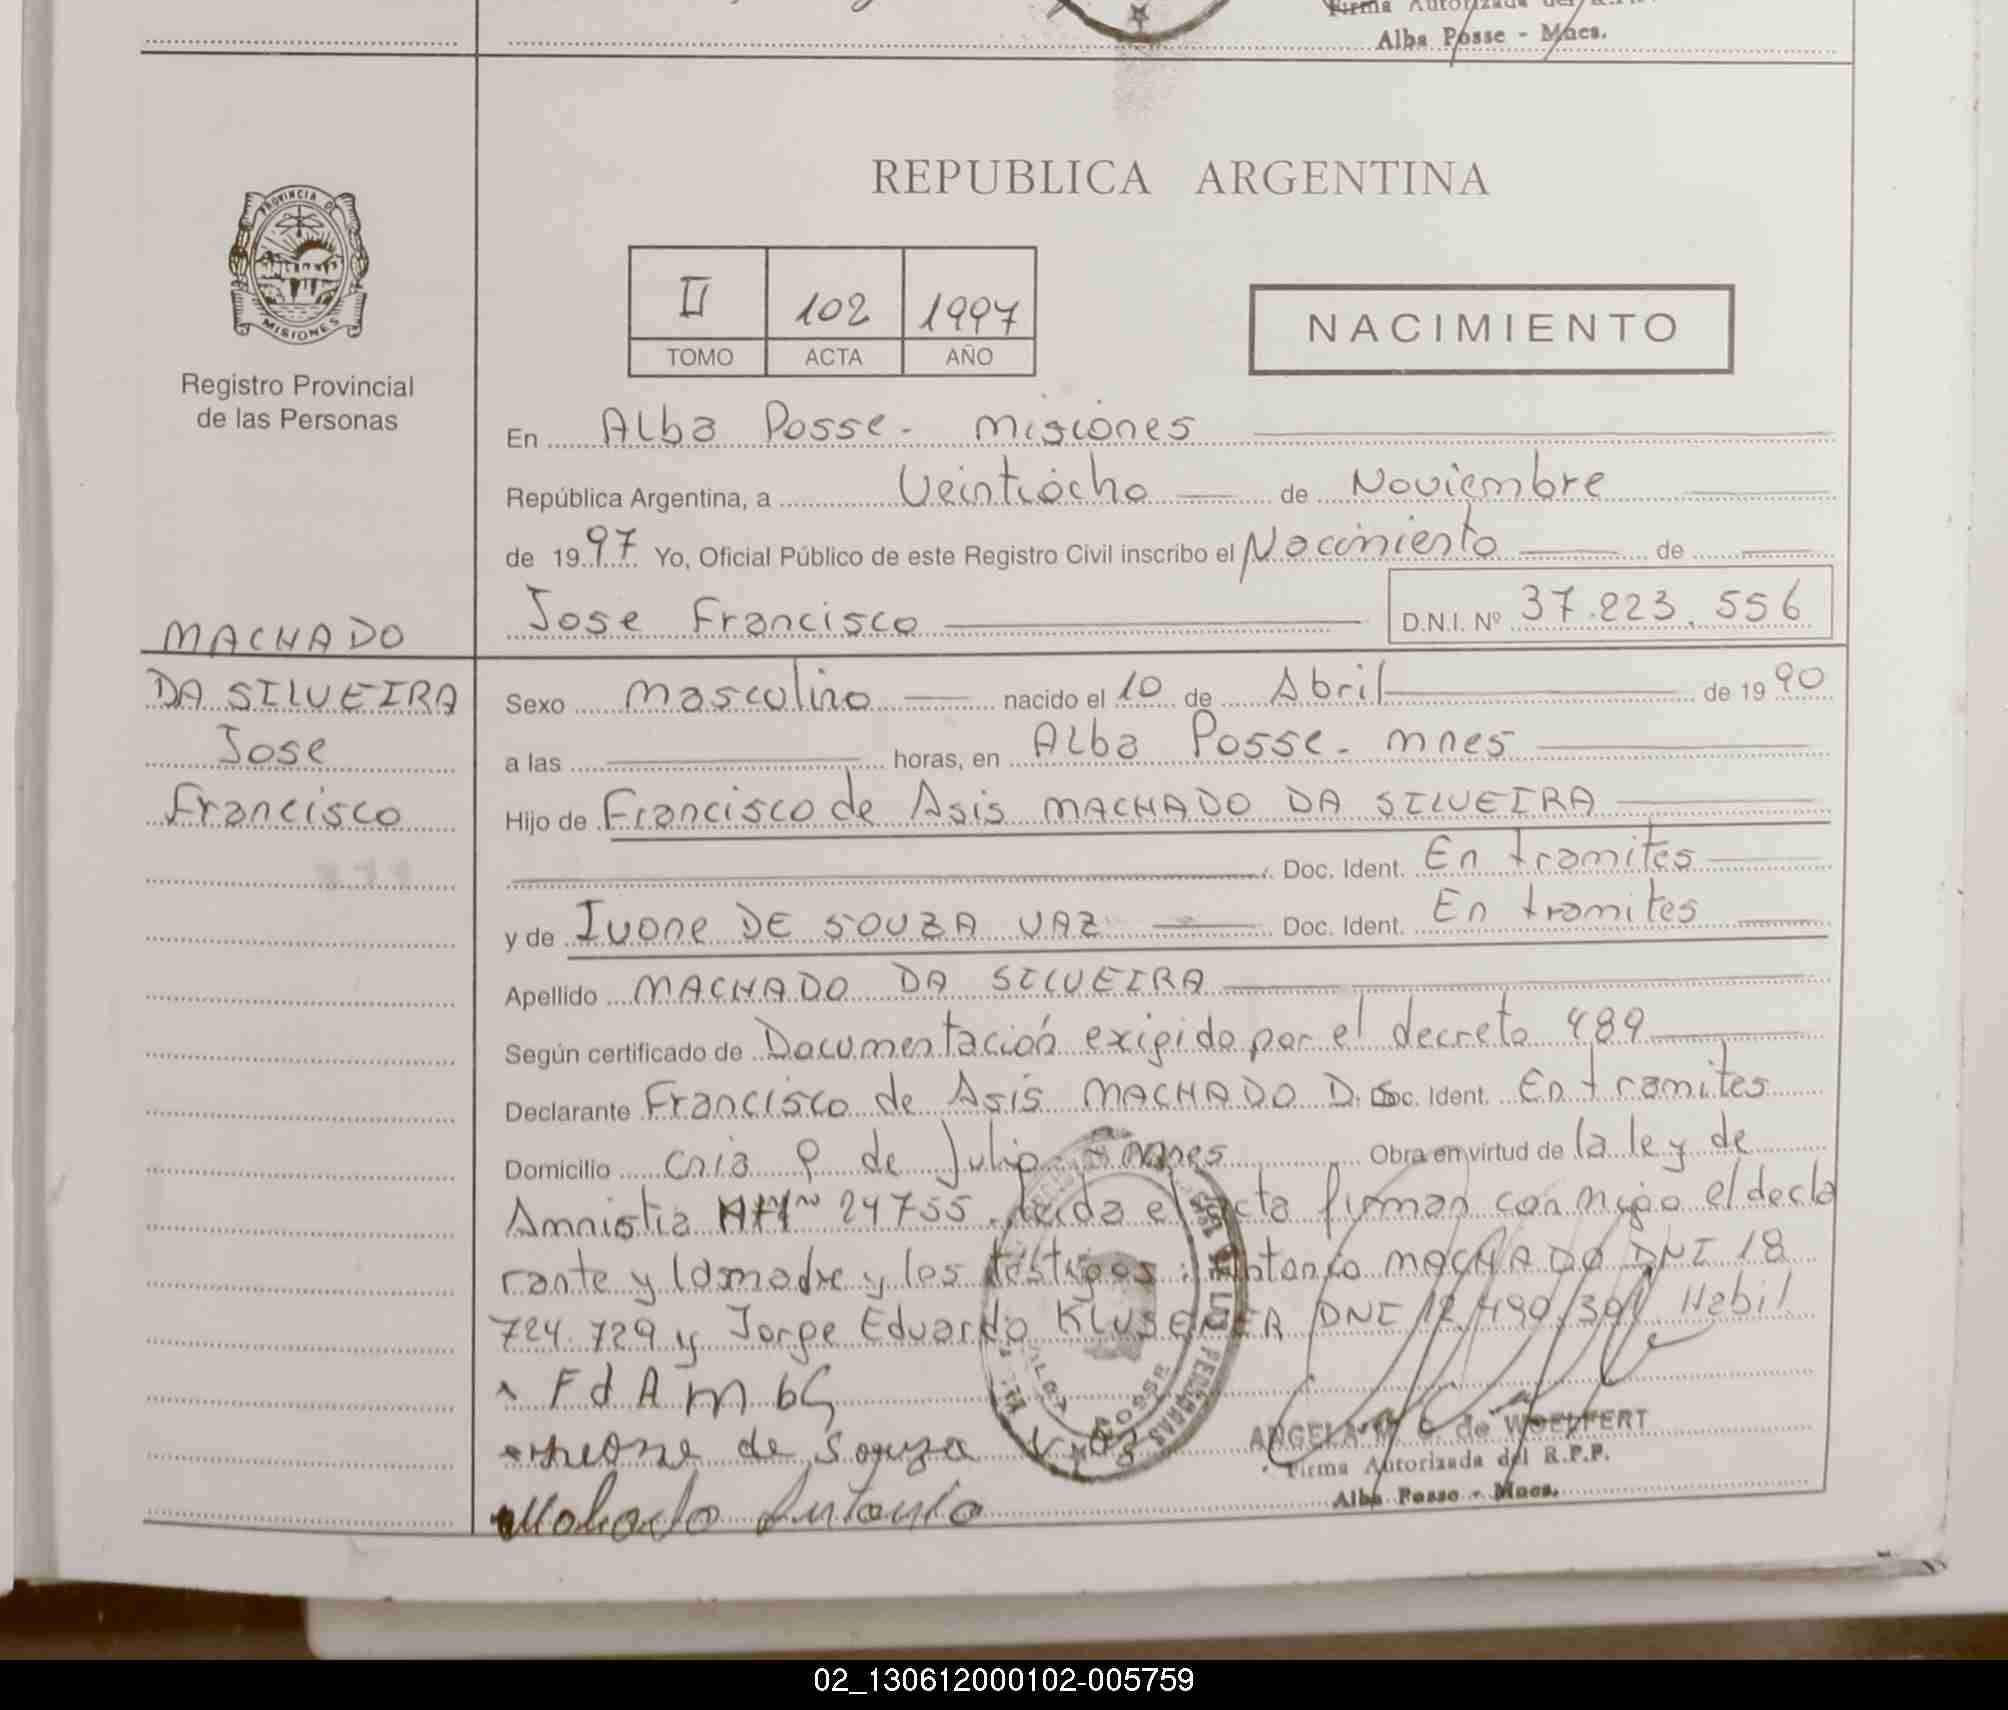 Firma Autorizada del R.P.P.
Alba Posse - Mnes.
PROVINCIA DE
MISIONES
Registro Provincial
de las Personas
REPUBLICA ARGENTINA
II 102 1997
TOMO ACTA AÑO
NACIMIENTO
En Alba Posse - Misiones
República Argentina, a Veintiocho de Noviembre
de 1997 Yo, Oficial Público de este Registro Civil inscribo el Nacimiento de
Jose Francisco D.N.I. Nº 37.223.556
MACHADO
DA SILVEIRA
Jose
Francisco
Sexo masculino nacido el 10 de Abril de 1990
a las horas, en Alba Posse - mnes
Hijo de Francisco de Asis MACHADO DA SILVEIRA
Doc. Ident. En tramites
y de Ivone DE SOUZA VAZ Doc. Ident. En tramites
Apellido MACHADO DA SILVEIRA
Según certificado de Documentación exigida por el decreto 489
Declarante Francisco de Asis MACHADO D. S Doc. Ident. En tramites
Domicilio Cnia 9 de Julio - mnes Obra en virtud de la ley de
Amnistia Nº 24755. Leida el acta firman conmigo el decla
rante y la madre y los testigos: Antonio MACHADO DNI 18
724.729 y Jorge Eduardo KLUSENER DNI 12.490.391 Habil
F d A m d S
Ivone de Souza Vaz
Machado Antonio
ANGELA de WOELFERT
Firma Autorizada del R.P.P.
Alba Posse - Mnes.
02_130612000102-005759